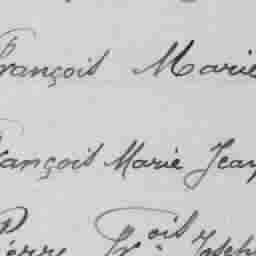 François Marie
François Marie Jean
Pierre Fr.ois Joseph